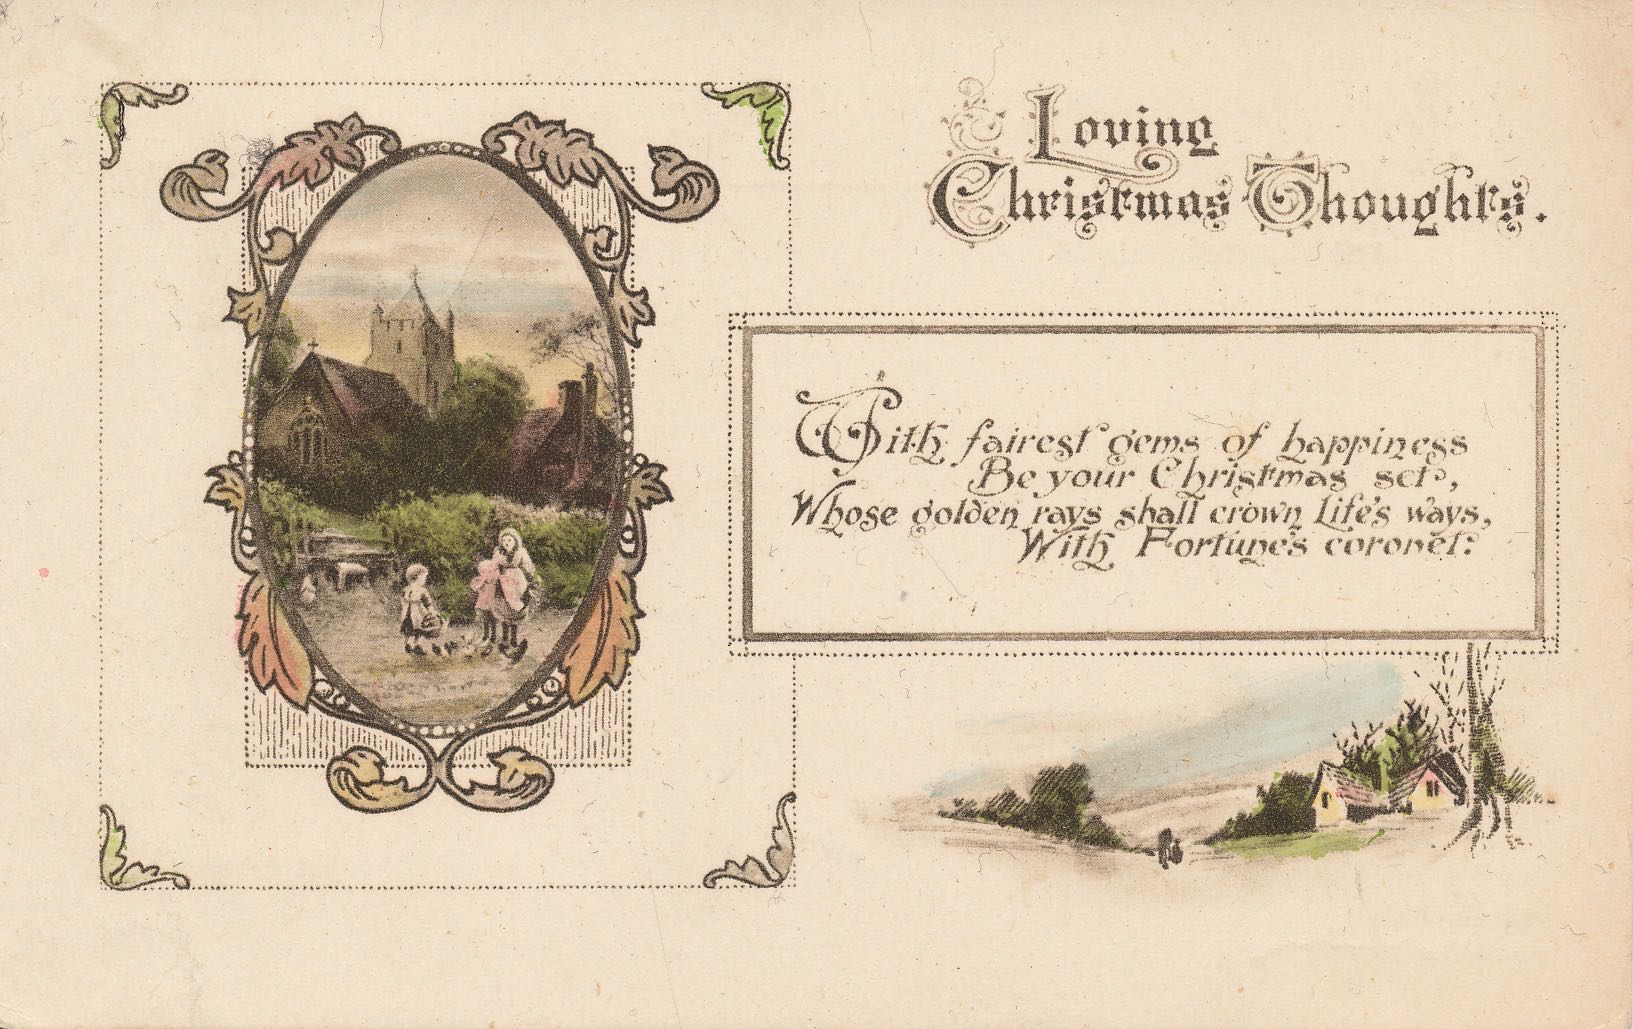 Loving
Christmas Thoughts.
With fairest gems of happiness
Be your Christmas set,
Whose golden rays shall crown Life's ways,
With Fortune's coronet.